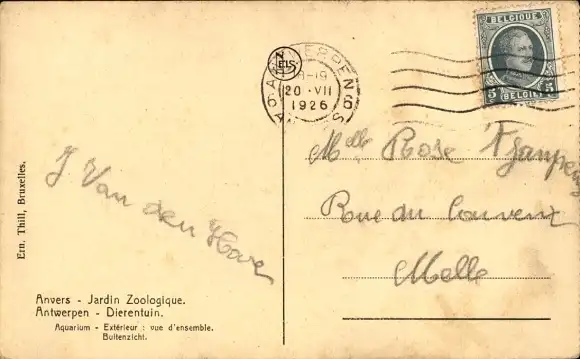 BELGIQUE
5 5
BELGIË
NELS
ANTWERPEN 6
18-19
20 · VII
1926
Melle Rose
Rue du Couvent
Melle
J Van den Hove
Ern. Thill, Bruxelles.
Anvers - Jardin Zoologique.
Antwerpen - Dierentuin.
Aquarium - Extérieur : vue d'ensemble.
Buitenzicht.